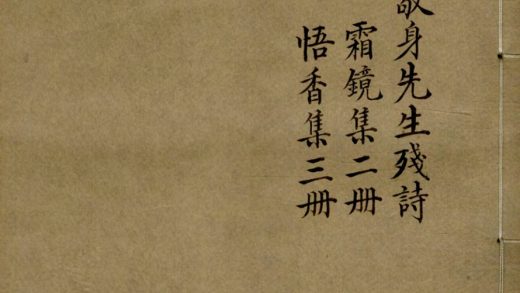 敬身先生殘詩
霜鏡集二册
悟香集三册